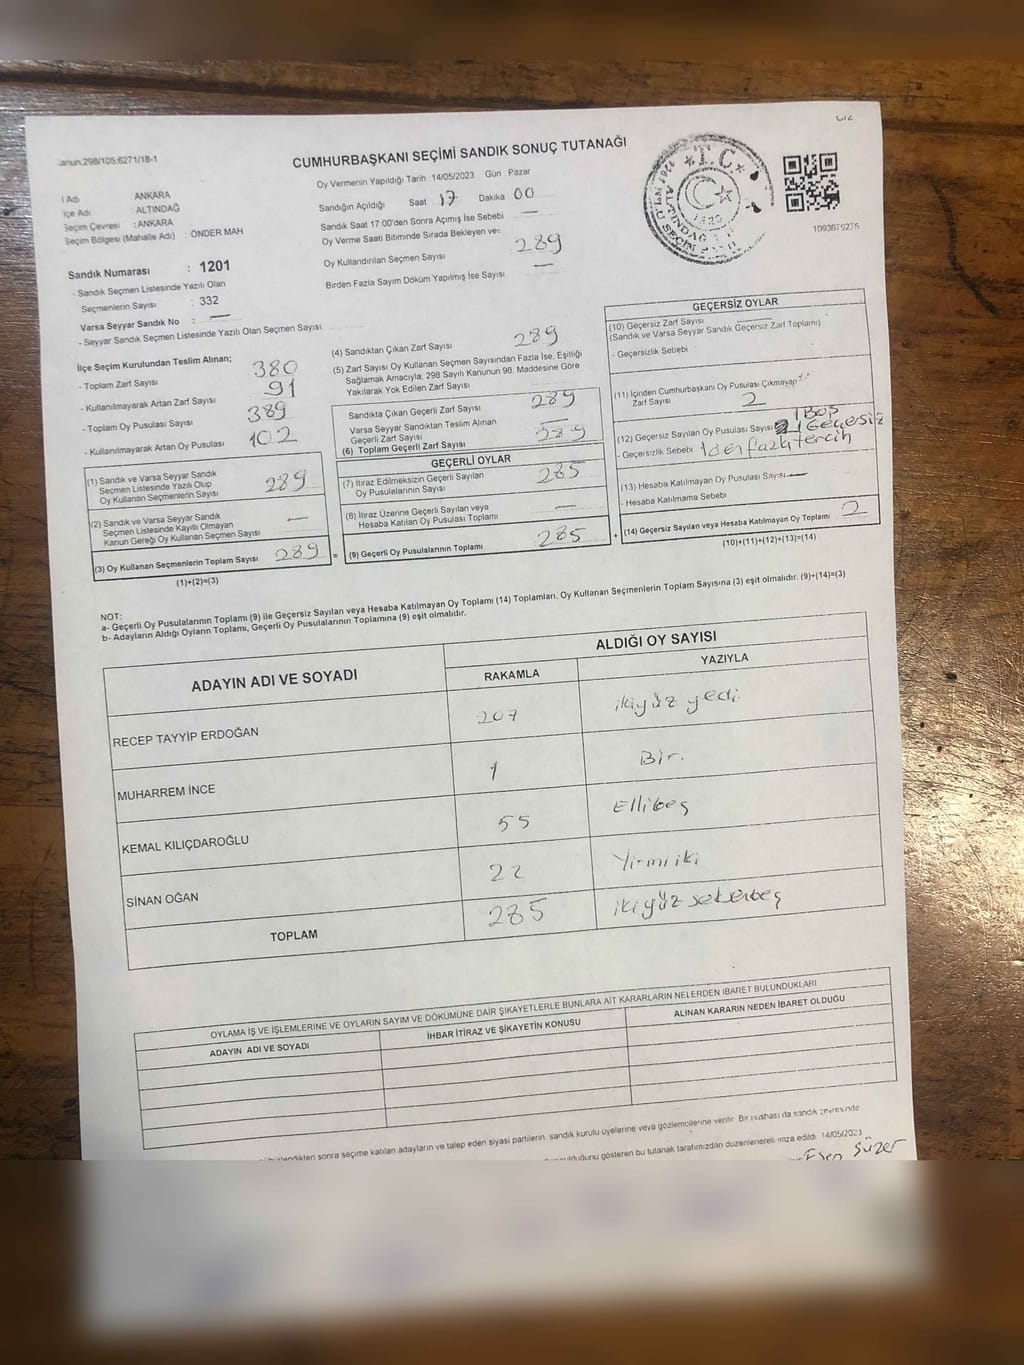 CUMHURBAŞKANI SEÇİMİ SANDIK SONUÇ TUTANAĞI
Oy Vermenin Yapıldığı Tarih 14/05/2023 Gün Pazar
Sandığın Açıldığı Saat 17 Dakika 00
Sandık Saat 17:00'den Sonra Açımış İse Sebebi —
Oy Verme Saati Bitiminde Sırada Bekleyen ve
Oy Kullandırılan Seçmen Sayısı 289
Birden Fazla Sayım Döküm Yapılmış İse Sayısı —
1093679276
298/105;6271/18-1
Adı ANKARA
Adı : ALTINDAĞ
Seçim Çevresi : ANKARA
Seçim Bölgesi (Mahalle Adı) : ÖNDER MAH
Sandık Numarası : 1201
- Sandık Seçmen Listesinde Yazılı Olan
Seçmenlerin Sayısı : 332
Varsa Seyyar Sandık No : —
- Seyyar Sandık Seçmen Listesinde Yazılı Olan Seçmen Sayısı
İlçe Seçim Kurulundan Teslim Alınan;
- Toplam Zarf Sayısı 380
- Kullanılmayarak Artan Zarf Sayısı 91
- Toplam Oy Pusulası Sayısı 389
- Kullanılmayarak Artan Oy Pusulası 102
(1) Sandık ve Varsa Seyyar Sandık
Seçmen Listesinde Yazılı Olup
Oy Kullanan Seçmenlerin Sayısı 289
(2) Sandık ve Varsa Seyyar Sandık
Seçmen Listesinde Kayıtlı Olmayan
Kanun Gereği Oy Kullanan Seçmen Sayısı —
(3) Oy Kullanan Seçmenlerin Toplam Sayısı 289
(1)+(2)=(3)
(4) Sandıktan Çıkan Zarf Sayısı 289
(5) Zarf Sayısı Oy Kullanan Seçmen Sayısından Fazla İse, Eşitliği
Sağlamak Amacıyla, 298 Sayılı Kanunun 98. Maddesine Göre
Yakılarak Yok Edilen Zarf Sayısı
Sandıkta Çıkan Geçerli Zarf Sayısı 289
Varsa Seyyar Sandıktan Teslim Alınan
Geçerli Zarf Sayısı —
(6) Toplam Geçerli Zarf Sayısı 289
GEÇERLİ OYLAR
(7) İtiraz Edilmeksizin Geçerli Sayılan
Oy Pusulalarının Sayısı 285
(8) İtiraz Üzerine Geçerli Sayılan veya
Hesaba Katılan Oy Pusulası Toplamı —
= (9) Geçerli Oy Pusulalarının Toplamı 285 +
GEÇERSİZ OYLAR
(10) Geçersiz Zarf Sayısı
(Sandık ve Varsa Seyyar Sandık Geçersiz Zarf Toplamı)
- Geçersizlik Sebebi
(11) İçinden Cumhurbaşkanı Oy Pusulası Çıkmayan
Zarf Sayısı 2
1 Boş
(12) Geçersiz Sayılan Oy Pusulası Sayısı 1 Geçersiz
- Geçersizlik Sebebi 1 den fazla tercih
(13) Hesaba Katılmayan Oy Pusulası Sayısı —
- Hesaba Katılmama Sebebi
(14) Geçersiz Sayılan veya Hesaba Katılmayan Oy Toplamı 2
(10)+(11)+(12)+(13)=(14)
NOT:
a- Geçerli Oy Pusulalarının Toplamı (9) ile Geçersiz Sayılan veya Hesaba Katılmayan Oy Toplamı (14) Toplamları, Oy Kullanan Seçmenlerin Toplam Sayısına (3) eşit olmalıdır. (9)+(14)=(3)
b- Adayların Aldığı Oyların Toplamı, Geçerli Oy Pusulalarının Toplamına (9) eşit olmalıdır.
ADAYIN ADI VE SOYADI
ALDIĞI OY SAYISI
RAKAMLA YAZIYLA
RECEP TAYYİP ERDOĞAN 207 ikiyüz yedi
MUHARREM İNCE 1 Bir.
KEMAL KILIÇDAROĞLU 55 Ellibeş
SİNAN OĞAN 22 Yirmiiki
TOPLAM 285 ikiyüz seksenbeş
OYLAMA İŞ VE İŞLEMLERİNE VE OYLARIN SAYIM VE DÖKÜMÜNE DAİR ŞİKAYETLERLE BUNLARA AİT KARARLARIN NELERDEN İBARET BULUNDUKLARI
ADAYIN ADI VE SOYADI İHBAR İTİRAZ VE ŞİKAYETİN KONUSU ALINAN KARARIN NEDEN İBARET OLDUĞU
sonra seçime katılan adayların ve talep eden siyasi partilerin sandık kurulu üyelerine veya gözlemcilerine verilir. Bir nüshası da sandık çevresinde
gösteren bu tutanak tarafımızdan düzenlenerek imza edildi. 14/05/2023
Süzer